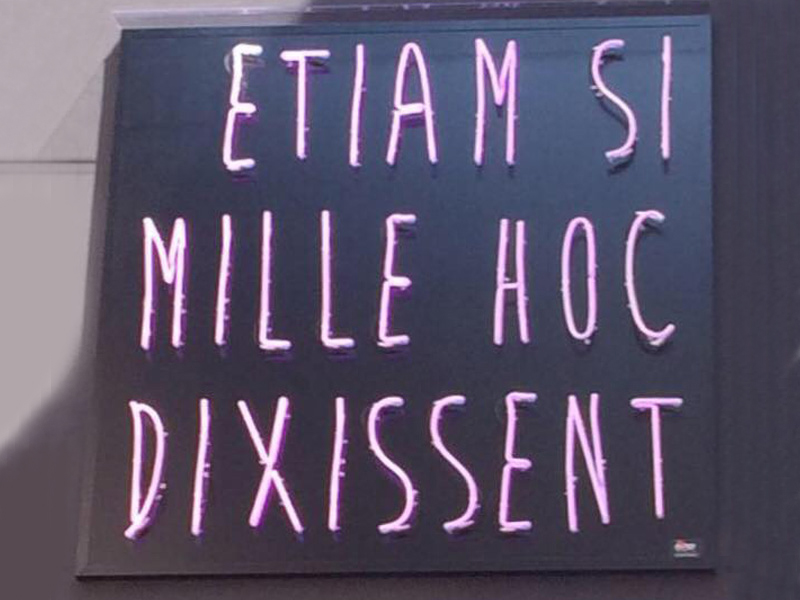 ETIAM SI
MILLE HOC
DIXISSENT